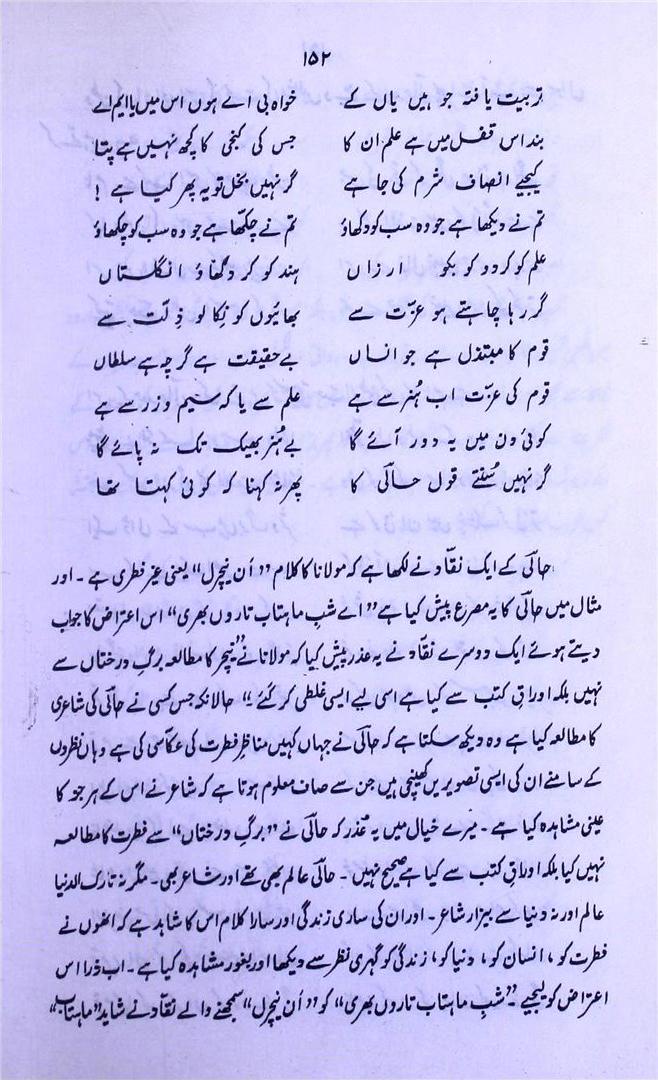 ۱۵۲
تربیت یافتہ جو ہیں یاں کے خواہ بی اے ہوں اس میں یا ایم اے
بند اس قفل میں ہے علم ان کا جس کی کنجی کا کچھ نہیں ہے پتا
کیجیے انصاف شرم کی جا ہے گر نہیں بخل تو یہ پھر کیا ہے !
تم نے دیکھا ہے جو وہ سب کو دکھاؤ تم نے چکھا ہے جو وہ سب کو چکھاؤ
علم کو کر دو کو بکو ارزاں ہند کو کر دکھاؤ انگلستاں
گر رہا چاہتے ہو عزت سے بھائیوں کو نکالو ذلت سے
قوم کا مبتذل ہے جو انساں بے حقیقت ہے گرچہ ہے سلطاں
قوم کی عزت اب ہنر سے ہے علم سے یا کہ سیم و زر سے ہے
کوئی دن میں یہ دور آئے گا بے ہنر بھیک تک نہ پائے گا
گر نہیں سنتے قول حالی کا پھر نہ کہنا کہ کوئی کہتا تھا
حالی کے ایک نقاد نے لکھا ہے کہ مولانا کا کلام ”اَن نیچرل“ یعنی غیر فطری ہے ۔ اور
مثال میں حالی کا یہ مصرع پیش کیا ہے ”اے شبِ ماہتاب تاروں بھری“ اس اعتراض کا جواب
دیتے ہوئے ایک دوسرے نقاد نے یہ عذر پیش کیا کہ مولانا نے ”نیچر کا مطالعہ برگِ درختاں سے
نہیں بلکہ اوراقِ کتب سے کیا ہے اسی لیے ایسی غلطی کر گئے“۔ حالانکہ جس کسی نے حالی کی شاعری
کا مطالعہ کیا ہے وہ دیکھ سکتا ہے کہ حالی نے جہاں کہیں مناظرِ فطرت کی عکاسی کی ہے وہاں نظروں
کے سامنے ان کی ایسی تصویریں کھینچی ہیں جن سے صاف معلوم ہوتا ہے کہ شاعر نے اس کے ہر جز کا
عینی مشاہدہ کیا ہے ۔ میرے خیال میں یہ عذر کہ حالی نے ”برگِ درختاں“ سے فطرت کا مطالعہ
نہیں کیا بلکہ اوراقِ کتب سے کیا ہے صحیح نہیں ۔ حالی عالم بھی تھے اور شاعر بھی ۔ مگر نہ تارک الدنیا
عالم اور نہ دنیا سے بیزار شاعر ۔ اور ان کی ساری زندگی اور سارا کلام اس کا شاہد ہے کہ انھوں نے
فطرت کو، انسان کو، دنیا کو، زندگی کو گہری نظر سے دیکھا اور بغور مشاہدہ کیا ہے ۔ اب ذرا اس
اعتراض کو لیجیے ۔ ”شبِ ماہتاب تاروں بھری“ کو ”اَن نیچرل“ سمجھنے والے نقاد نے شاید ”ماہتاب“